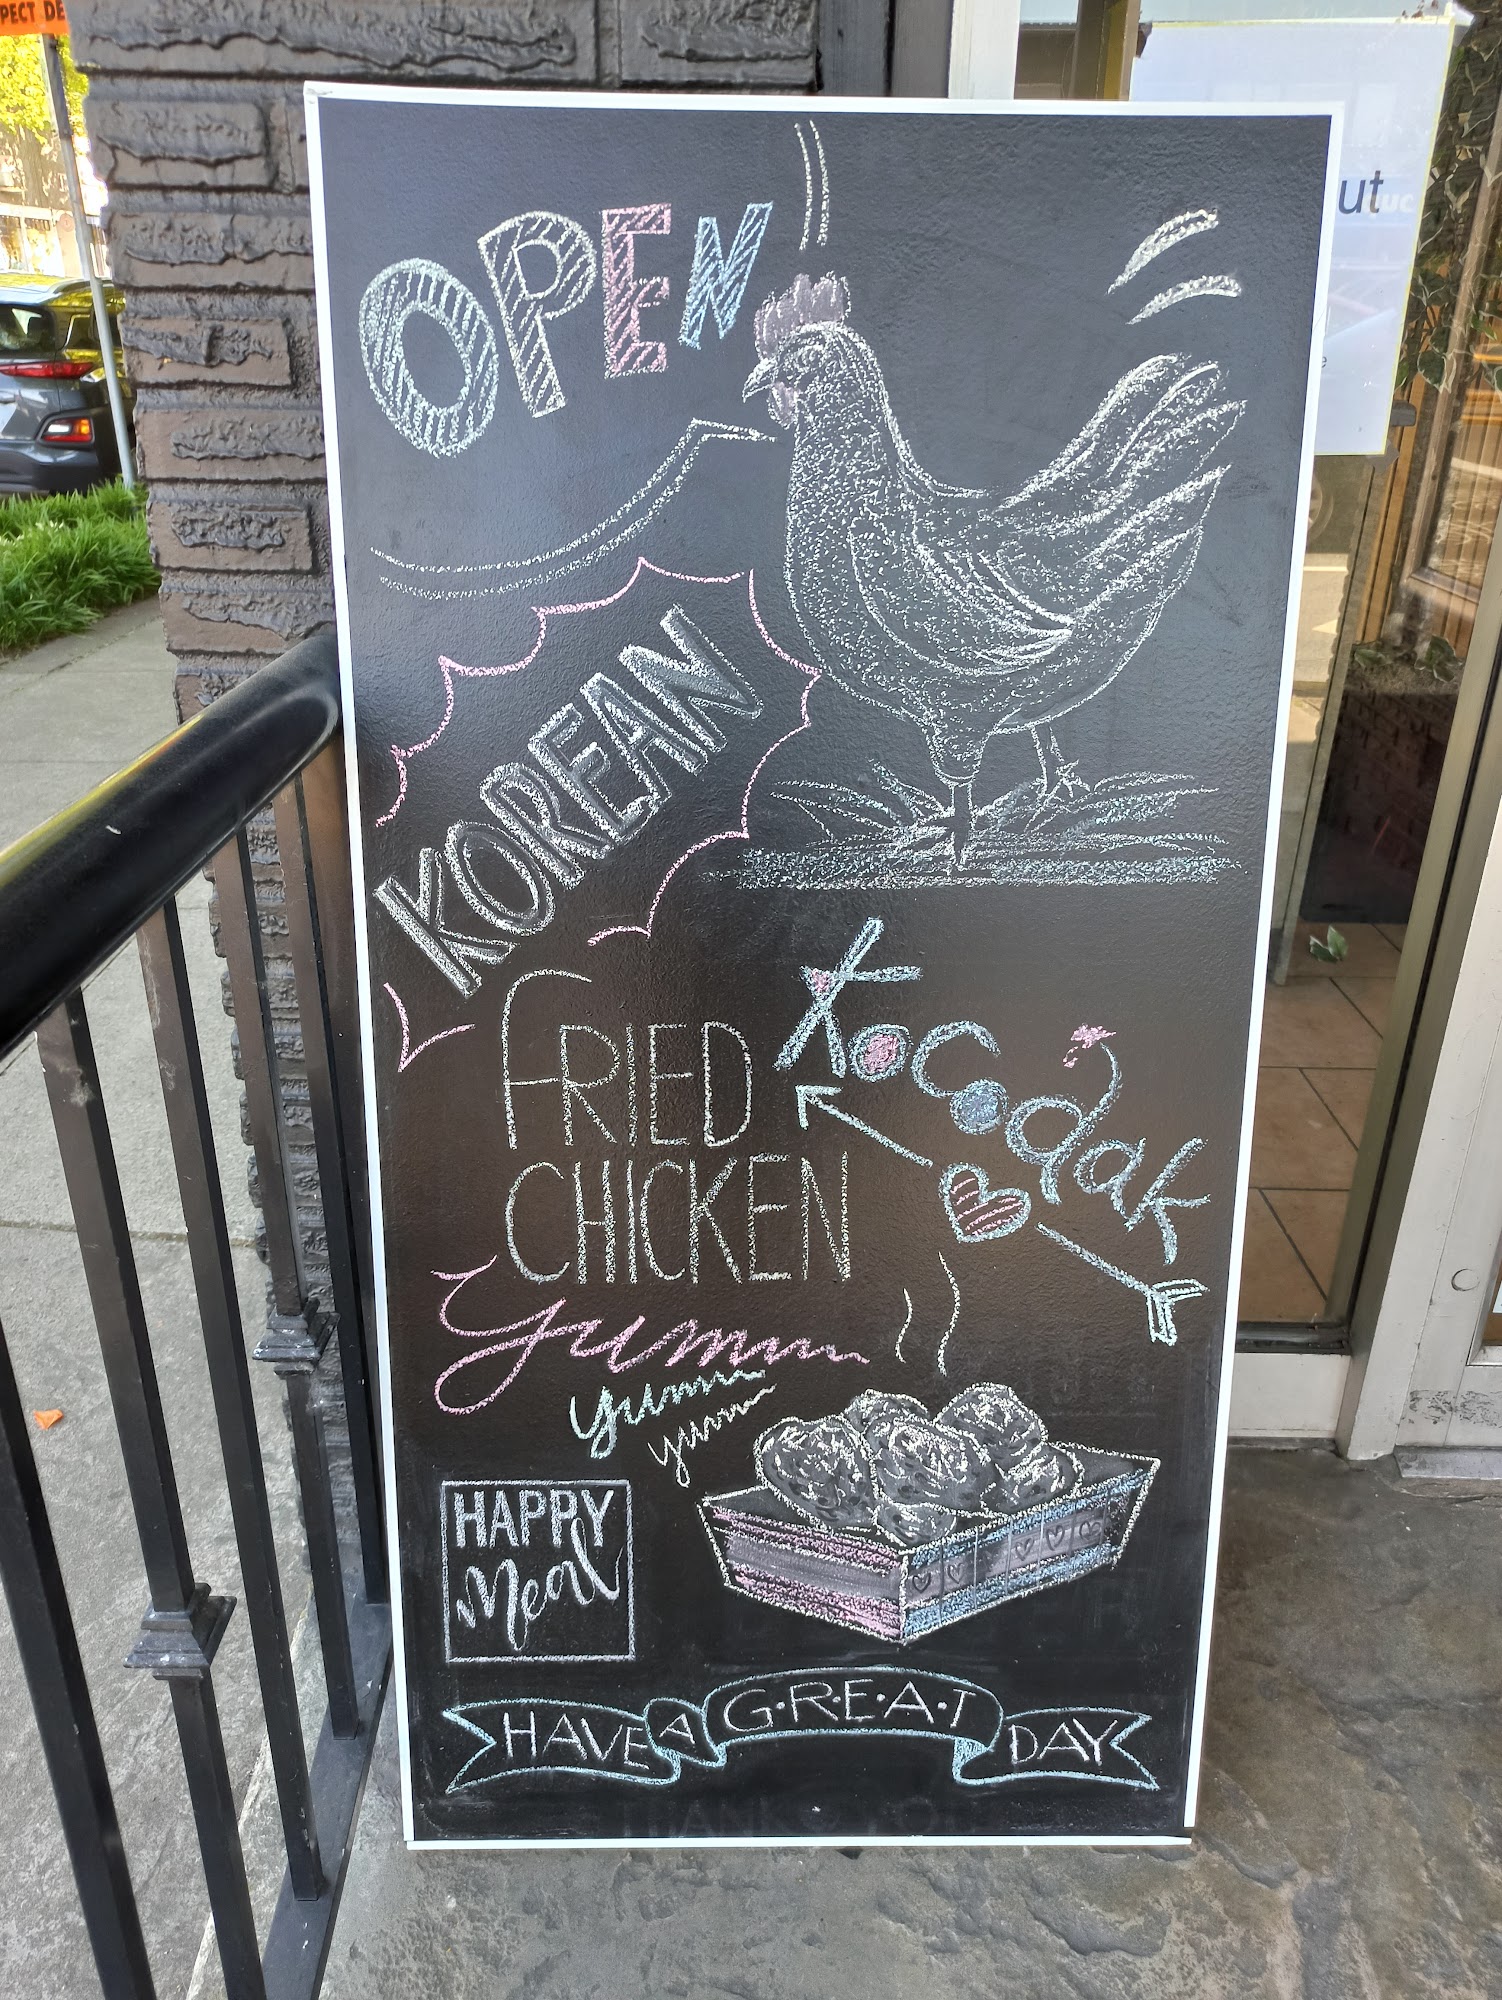 PECT DE
OPEN
ut
KOREAN
FRIED
CHICKEN
Kocodak
yumm
yumm
yum
HAPPY
Meal
HAVE A G·R·E·A·T DAY